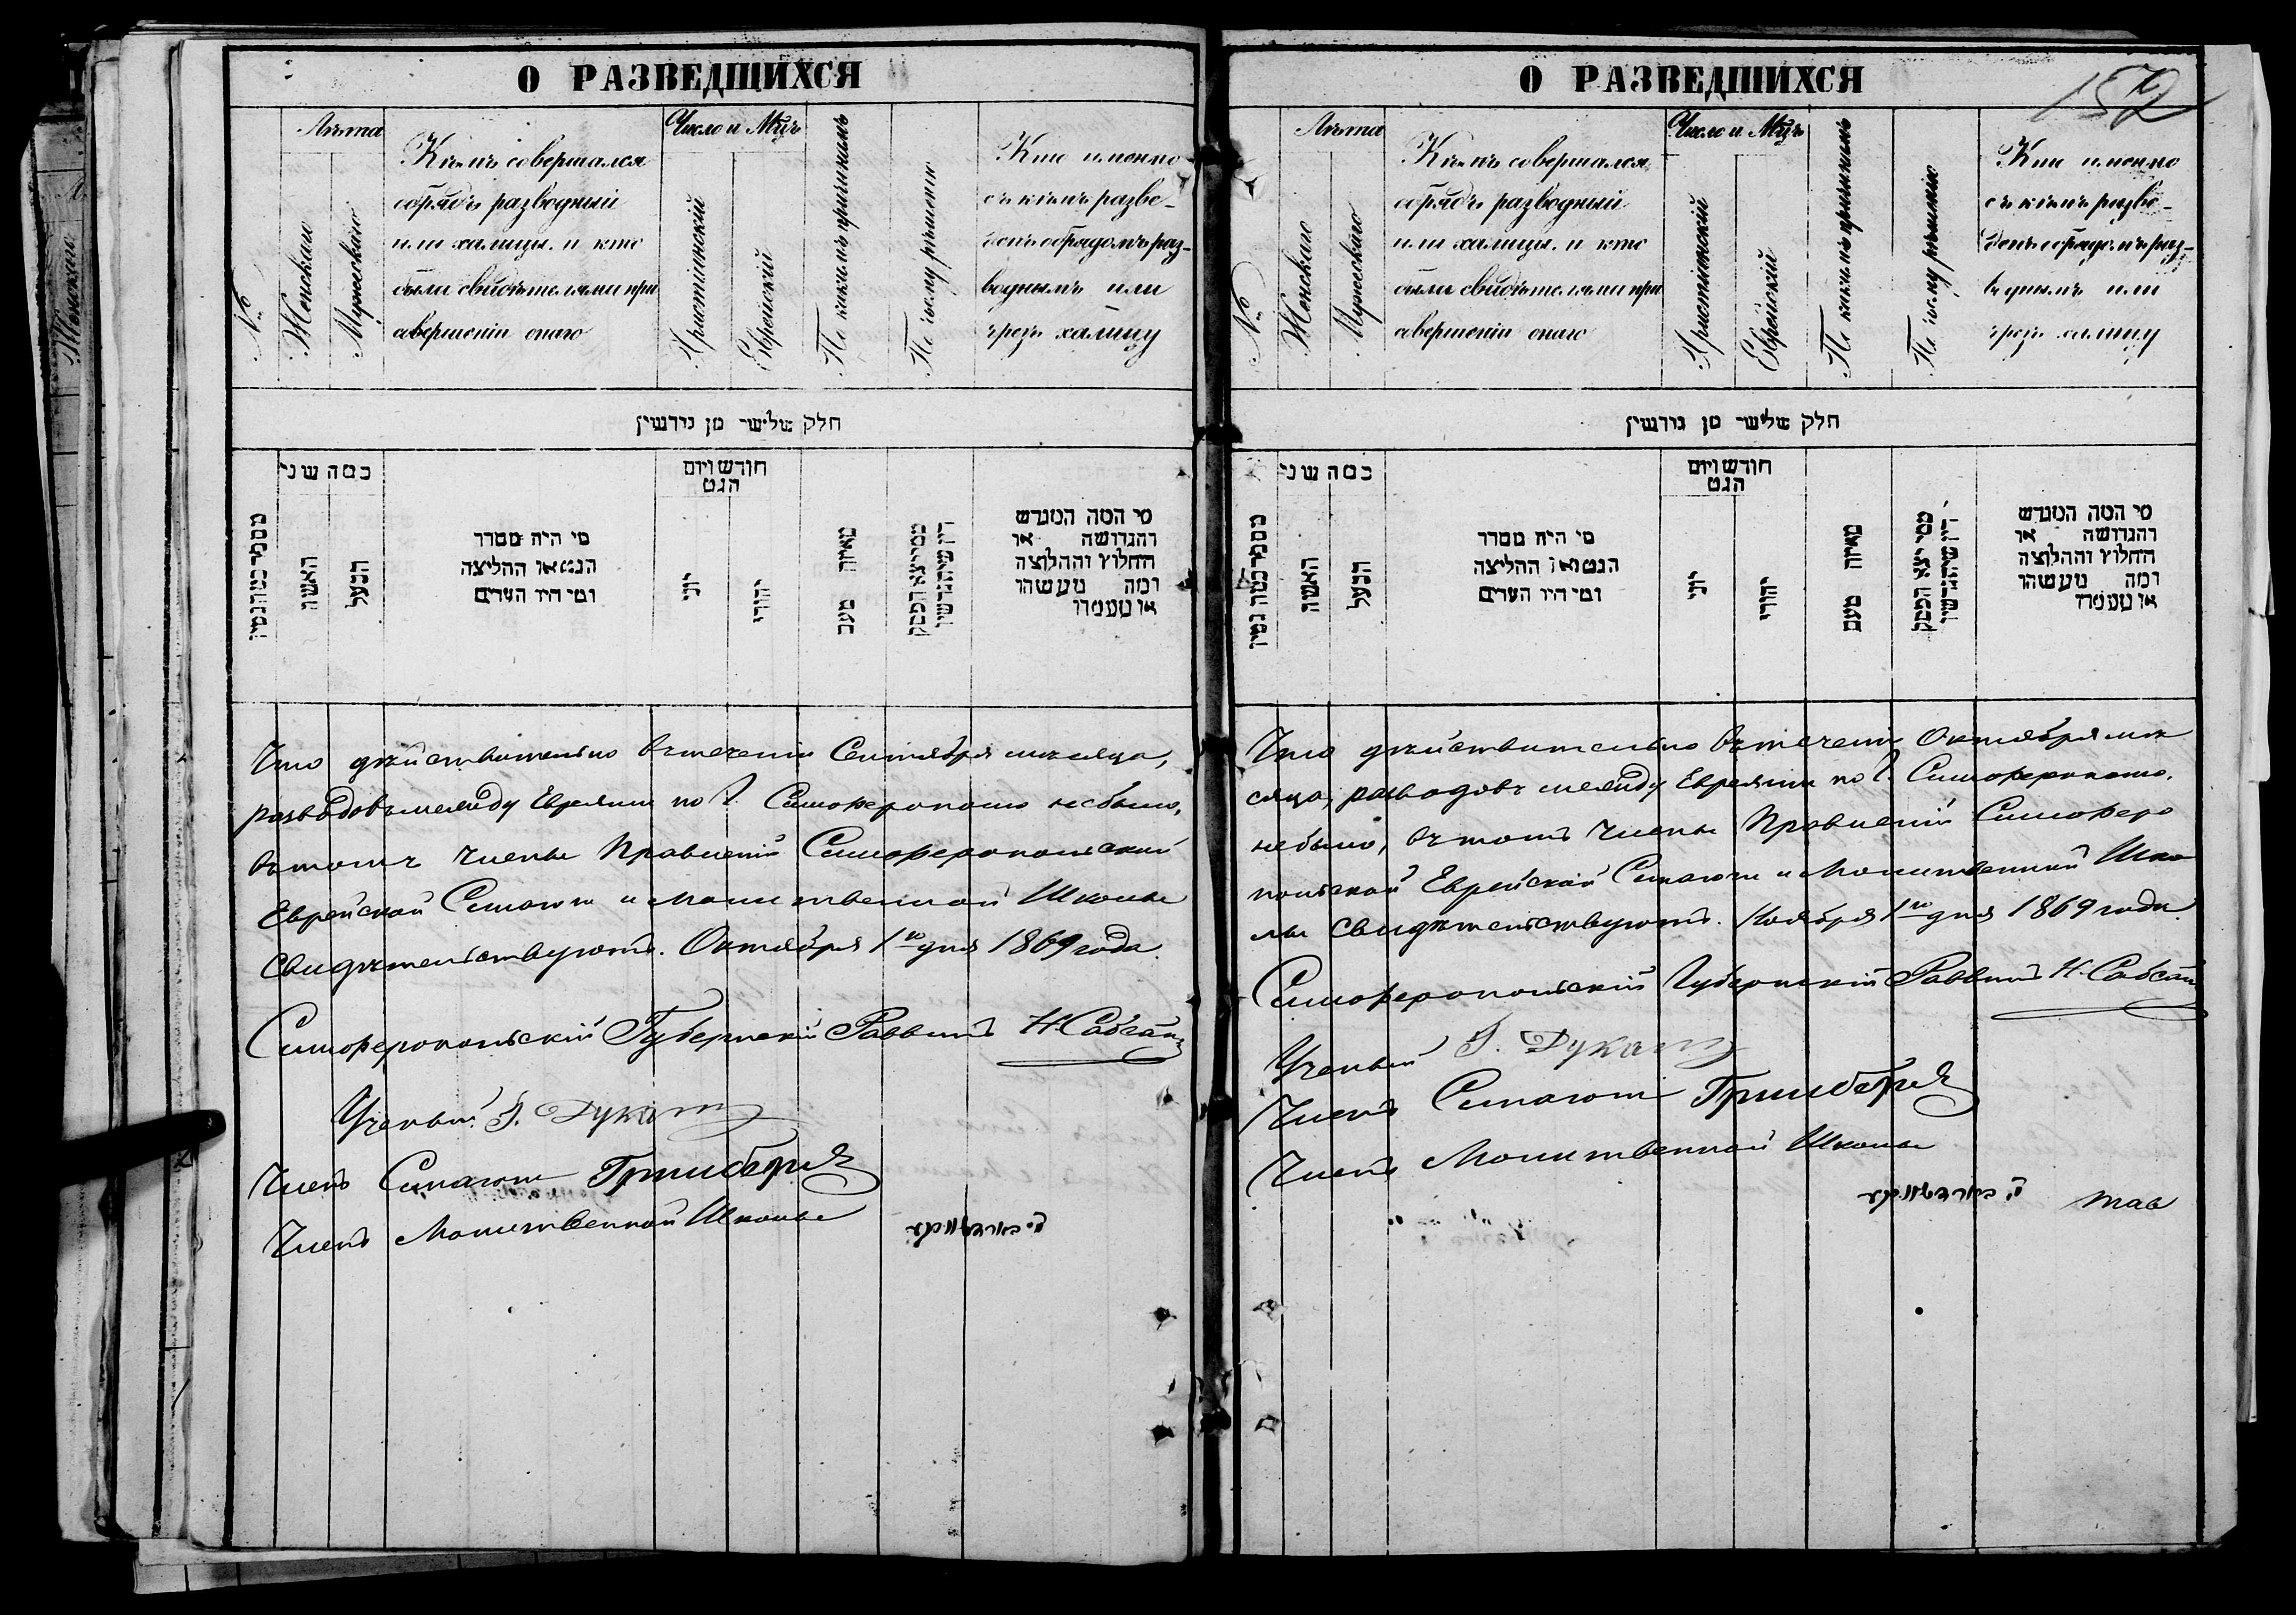 О РАЗВЕДШИХСЯ
Лѣта
Число и Мцъ
№
Женскаго
Мужескаго
Кѣмъ совершался
обрядъ разводный
или халицы. и кто
были свидѣтелями при
совершеніи онаго
Христіянскій
Еврейскій
По какимъ причинамъ
По чьему рѣшенію
Кто именно
съ кѣмъ разве-
денъ обрядомъ раз-
воднымъ или
чрезъ халицу
חלק שלישי מן גירושין
כמה שני
חודש ויום
הגט
האשה
הבעל
מי היה מסדר
הגט או החליצה
ומי היו העדים
יוני
יהודי
מאיזה טעם
מי המה המגרש
והגרושה או
החלוץ וההלוצה
ומה מעשהו
או מעמדו
Что дѣйствительно втеченіи Сентября мѣсяца,
разводовъ между Евреями по г. Симферополю небыло,
въ томъ Члены Правленій Симферопольской
Еврейской Синагоги и Молитвенной Школы
Свидѣтельствуютъ. Октября 1го дня 1869 года.
Симферопольскій Губернскій Раввинъ Н. Сабсай
Ученый
Членъ Синагоги Гринберг
Членъ Молитвенной Школы
О РАЗВЕДШИХСЯ
152
Лѣта
Число и Мцъ
№
Женскаго
Мужескаго
Кѣмъ совершался
обрядъ разводный
или халицы. и кто
были свидѣтелями при
совершеніи онаго
Христіянскій
Еврейскій
По какимъ причинамъ
По чьему рѣшенію
Кто именно
съ кѣмъ разве-
денъ обрядомъ раз-
воднымъ или
чрезъ халицу
חלק שלישי מן גירושין
כמה שני
חודש ויום
הגט
האשה
הבעל
מי היה מסדר
הגט או ההליצה
ומי היו העדים
יוני
יהודי
מאיזה טעם
מי המה המגרש
והגרושה או
החלוץ וההלוצה
ומה מעשהו
או מעמדו
Что дѣйствительно втеченіи Октября мѣ
сяца, разводовъ между Евреями по г. Симферополю
небыло, въ томъ Члены Правленій Симферо
польской Еврейской Синагоги и Молитвенной Шко
лы Свидѣтельствуютъ. Ноября 1го дня 1869 года.
Симферопольскій Губернскій Раввинъ Н. Сабсай
Ученый
Членъ Синагоги Гринберг
Членъ Молитвенной Школы